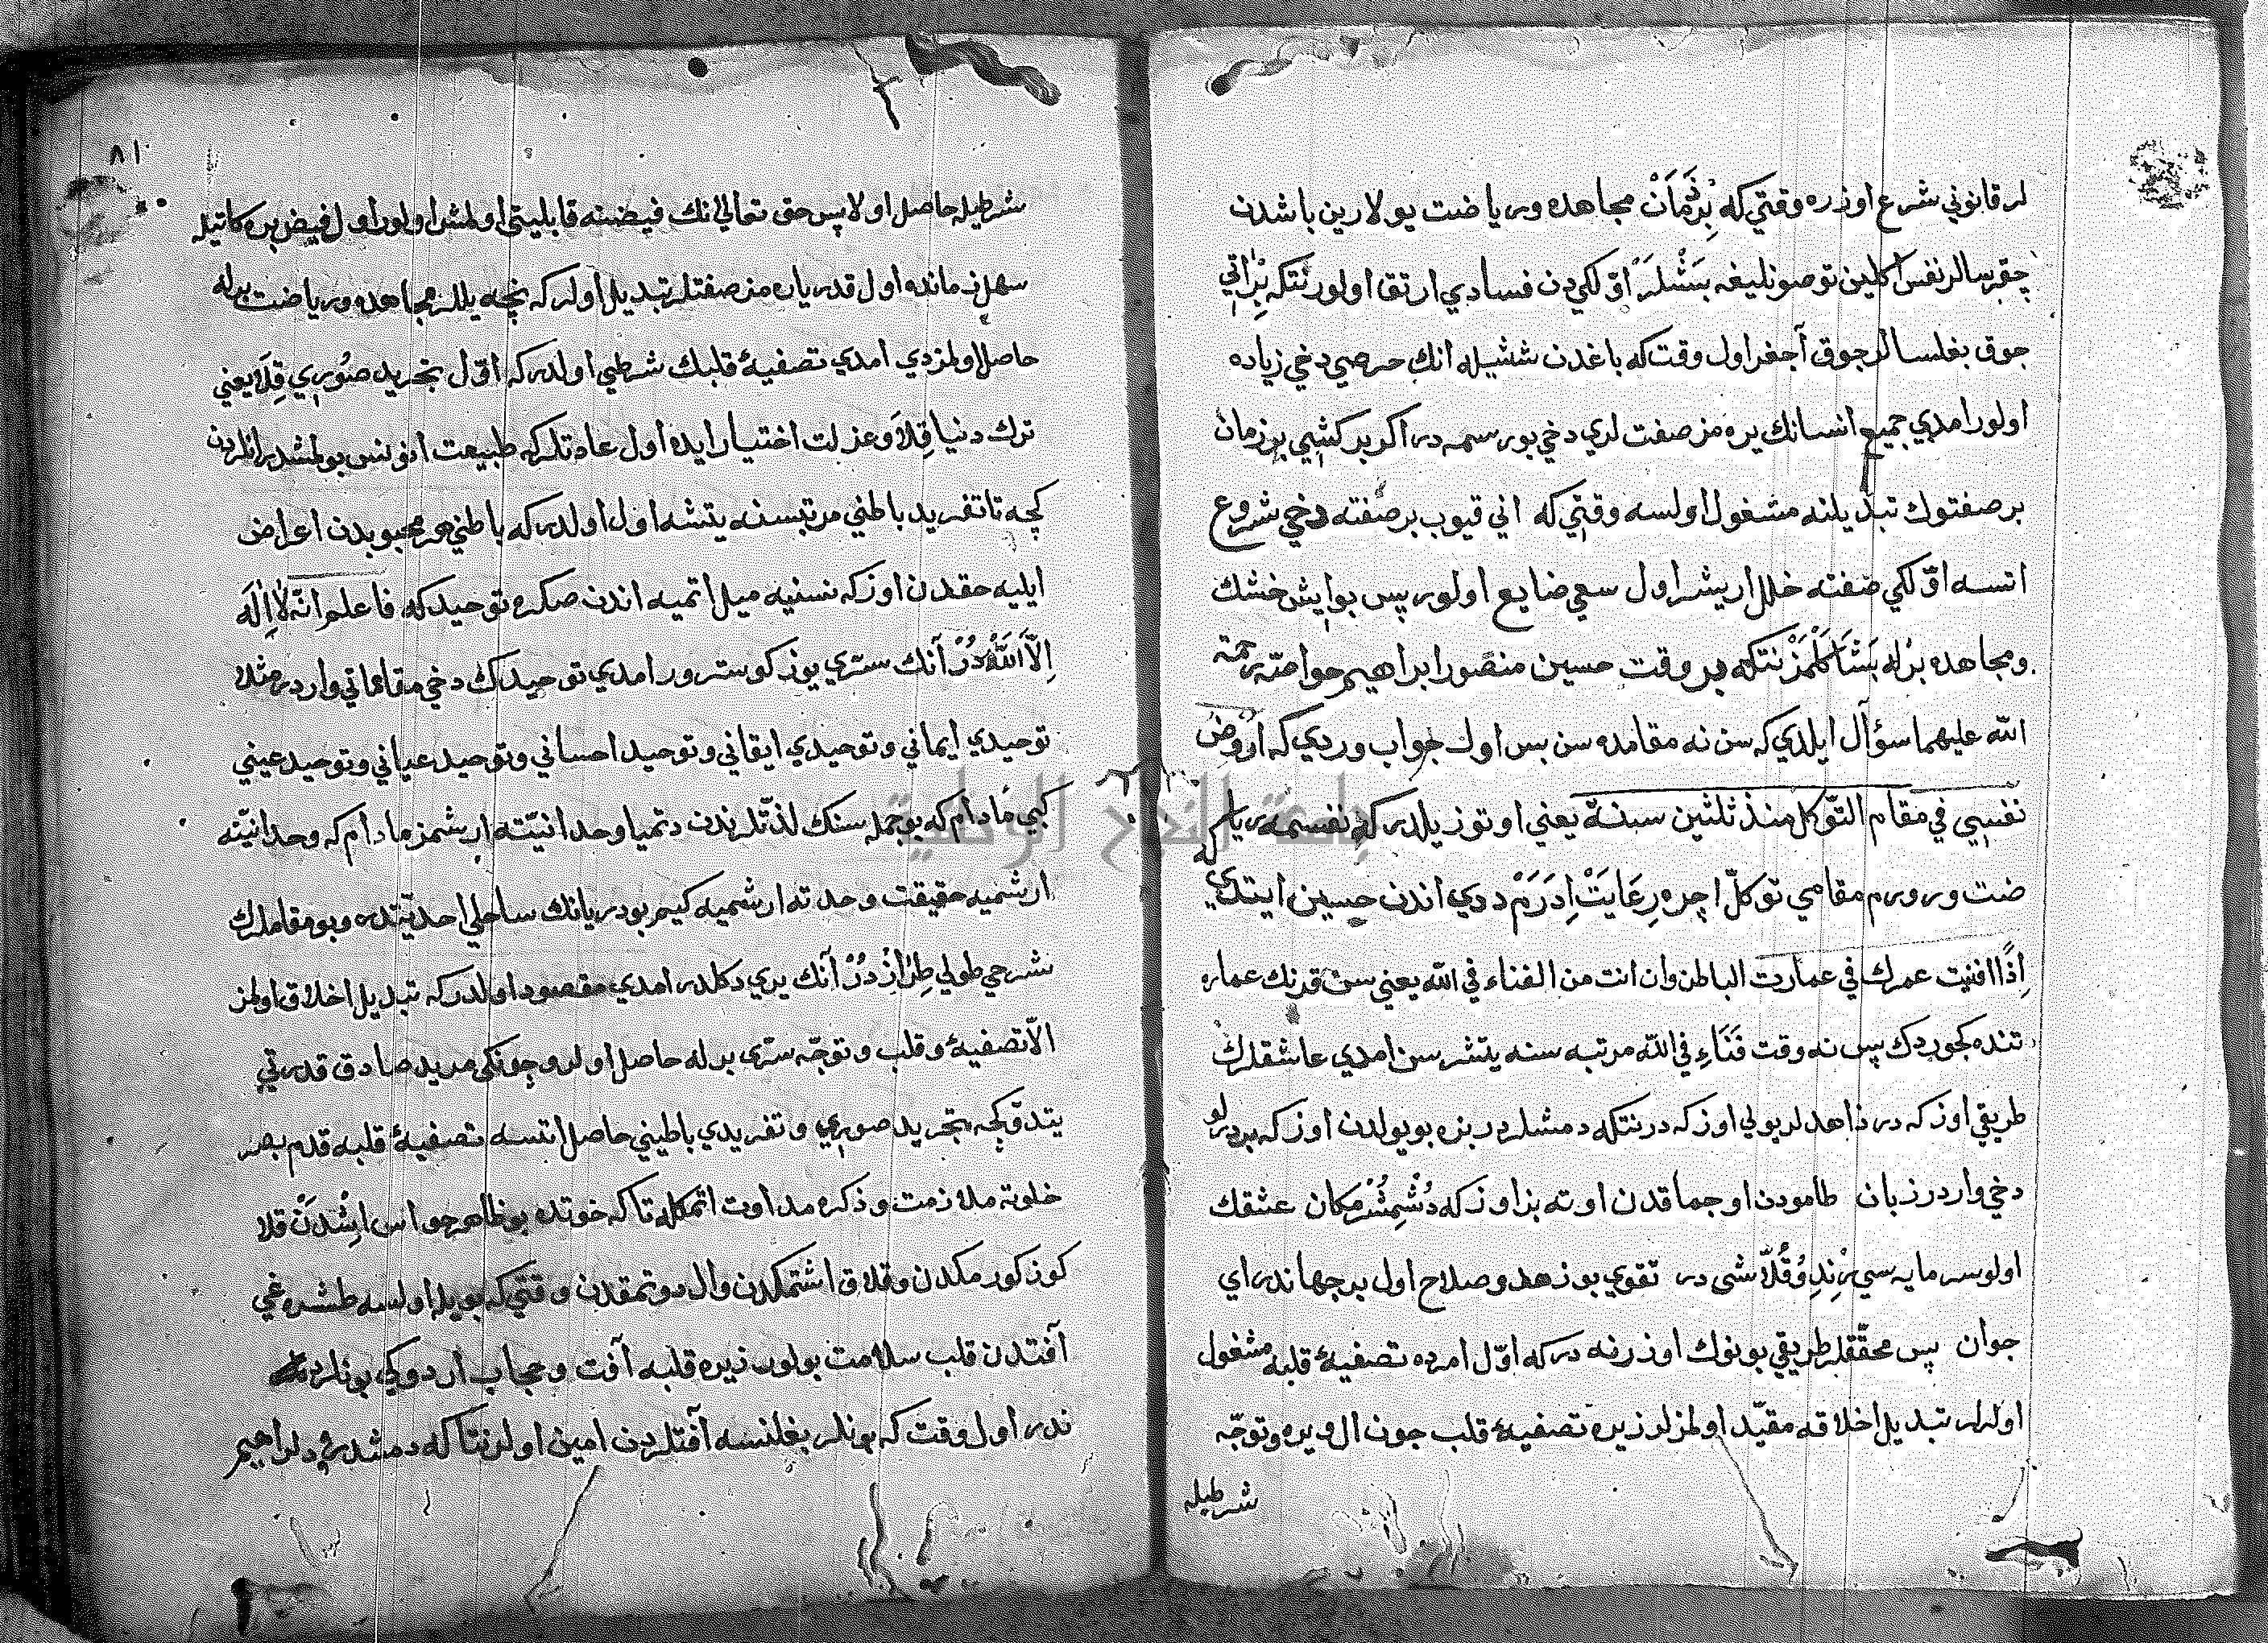 لر قانوني شرع اوزره وقتي كه بِرْزَمَانْ مجاهده ورياضت يولارين باشدن
چقرسالر نفس اكلين توصونليغه بَشْلَرْ اوّلكي دن فسادي ارتق اولور نتكه بِرْاتي
جوق بغلسالر جوق آجغر اول وقت كه باغدن ششيله انك حرصي دخي زياده
اولور امدي جميع انسانك يره مز صفت لري دخي بو رسمه در اكر بر كشي بر زمان
بر صفتوك تبديلنه مشغول اولسه وقتي كه اني قيوب بر صفته دخي شروع
اتسه اوّلكي صفته خلل اريشر اول سعي ضايع اولور پس بو ايش خشك
ومجاهده بِرْله بَشَا كَلْمَزْ نتكه بر وقت حسين منصور ابراهيم خواصّه رحمة
الله عليهما سؤال ايلدي كه سن نه مقامده سن بس اول جواب وردي كه اروض
نفسي في مقام التوّكل منذ ثلثين سنة يعني اوتوز يلدر كه نفسمه ريا
ضت ورورم مقامي توكلّ اچره رِعَايَتْ اِدَرَمْ ددي اندن حسين ايتدي كه
اِذَا افنيت عمرك في عمارت الباطن وان انت من الفناء في الله يعني سن قدنك عماره
تنده كجوردك پس نه وقت فَنَاءِ في الله مرتبه سنه يتشرسن امدي عاشقلرك
طريقي اوزكه در زاهدلر يولي اوزكه در نتكه دمشلردر بزه بو يولدن اوزكه بر يولو
دخي واردر زبان طامودن اوجماقدن اوته بزاوزكه دُشْمِشُزْ مكان عشقك
اولو سرمايه سي رِنْدِ وُقُلّاشى در تقوي بو زهد وصلاح اول بر جهاندر اي
جوان پس محقّقلر طريقي بونوك اوزرنه در كه اوّل امرده تصفيهٔ قلبه مشغول
اولرلر تبديل اخلاقه مقيّد اولمزلر زيره تصفيهٔ قلب جون ال ويره وتوجّه
شرطيله
٨١
شرطيله حاصل اولا پس حق تعالي نك فيضنه قابليتي اولمش اولور اول فيض بره كاتيله
سهل زمانده اول قدر ياره مز صفتلر تبديل اولر كه نچه يللر مجاهده ورياضت برله
حاصل اولمزدي امدي تصفيهٔ قلبك شرطي اولدر كه اوّل تجريد صُوري قِلَا يعني
ترك دنيا قِلَا وعزلت اختيار ايده اول عادتلر كه طبيعت انونس بولمشدر انلردن
كچه تا تفريد باطني مرتبسنه يتشه اول اولدر كه باطني هر محبوبدن اعراض
ايليه حقدن اوزكه نسنيه ميل اتميه اندن صكره توحيد كه فاعلم انّه لَا اِلَهَ
اِلَّا اَللهُ دُرْ آنك سرّي يوز كوسترور امدي توحيدك دخي مقاماتي واردر مثلا
توحيدي ايماني وتوحيدي ايقاني وتوحيد احساني وتوحيد عياني وتوحيد عيني
كبي مادام كه بو جمله سنك لذّتلرندن دتميا وحدانيّته ارشمز مادام كه وحدانيّته
ارشميه حقيقت وحدته ارشميه كيم بو دريانك ساحلي احديّتدر وبو مقاملرك
شرحي طولي طِرَازْ دُرْ آنك يري دكلدر امدي مقصود اولدر كه تبديل اخلاق اولمز
الّا تصفيهٔ وقلب وتوجّه سرّي برله حاصل اولر وچونكى مريد صادق قدرتي
يتدوكجه تجريد صوري وتفريدي باطيني حاصل اتسه تصفيهٔ قلبه قدم بصر
خلوته ملازمت وذكره مداومت اتمكله تا كه خوتده بو ظاهر حواس ايشدَنْ قلا
كوز كورمكدن وقلاق اشتمكدن وال دوتمقدن وقتي كه بويله اولسه طشره غي
آفتدن قلب سلامت بولور زيره قلبه آفت وحجاب اردوكي بونلردن
ندر اول وقت كه بونلر بغلنسه آفتلردن امين اولر نتا كه دمشدر در ابراهيم